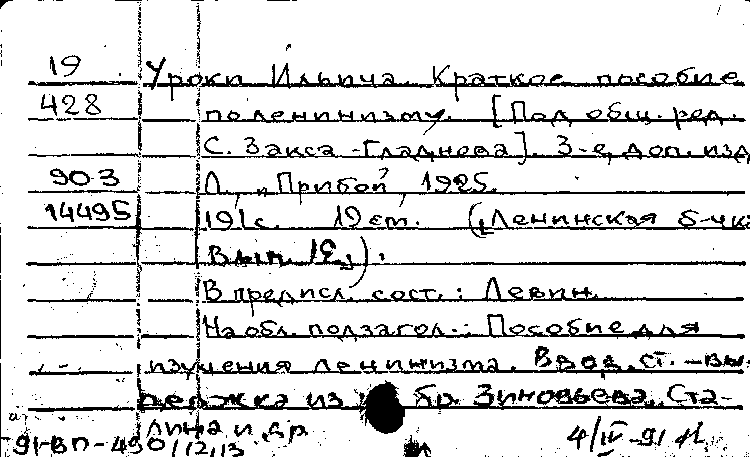 19 Уроки Ильича. Краткое пособие
428 по ленинизму. [Под общ. ред.
С. Закса-Гладнева]. 3-е, доп. изд
90-3 Л., „Прибой", 1925.
14495 191 с. 19 см. („Ленинская б-чка
Вып.
В предисл. сост.: Левин.
На обл. подзагол.: Пособие для
изучения ленинизма. Ввод. ст. - вы-
держка из бр. Зиновьева, Ста-
лина и др
91-ВП-490/12,13 4/IV-91